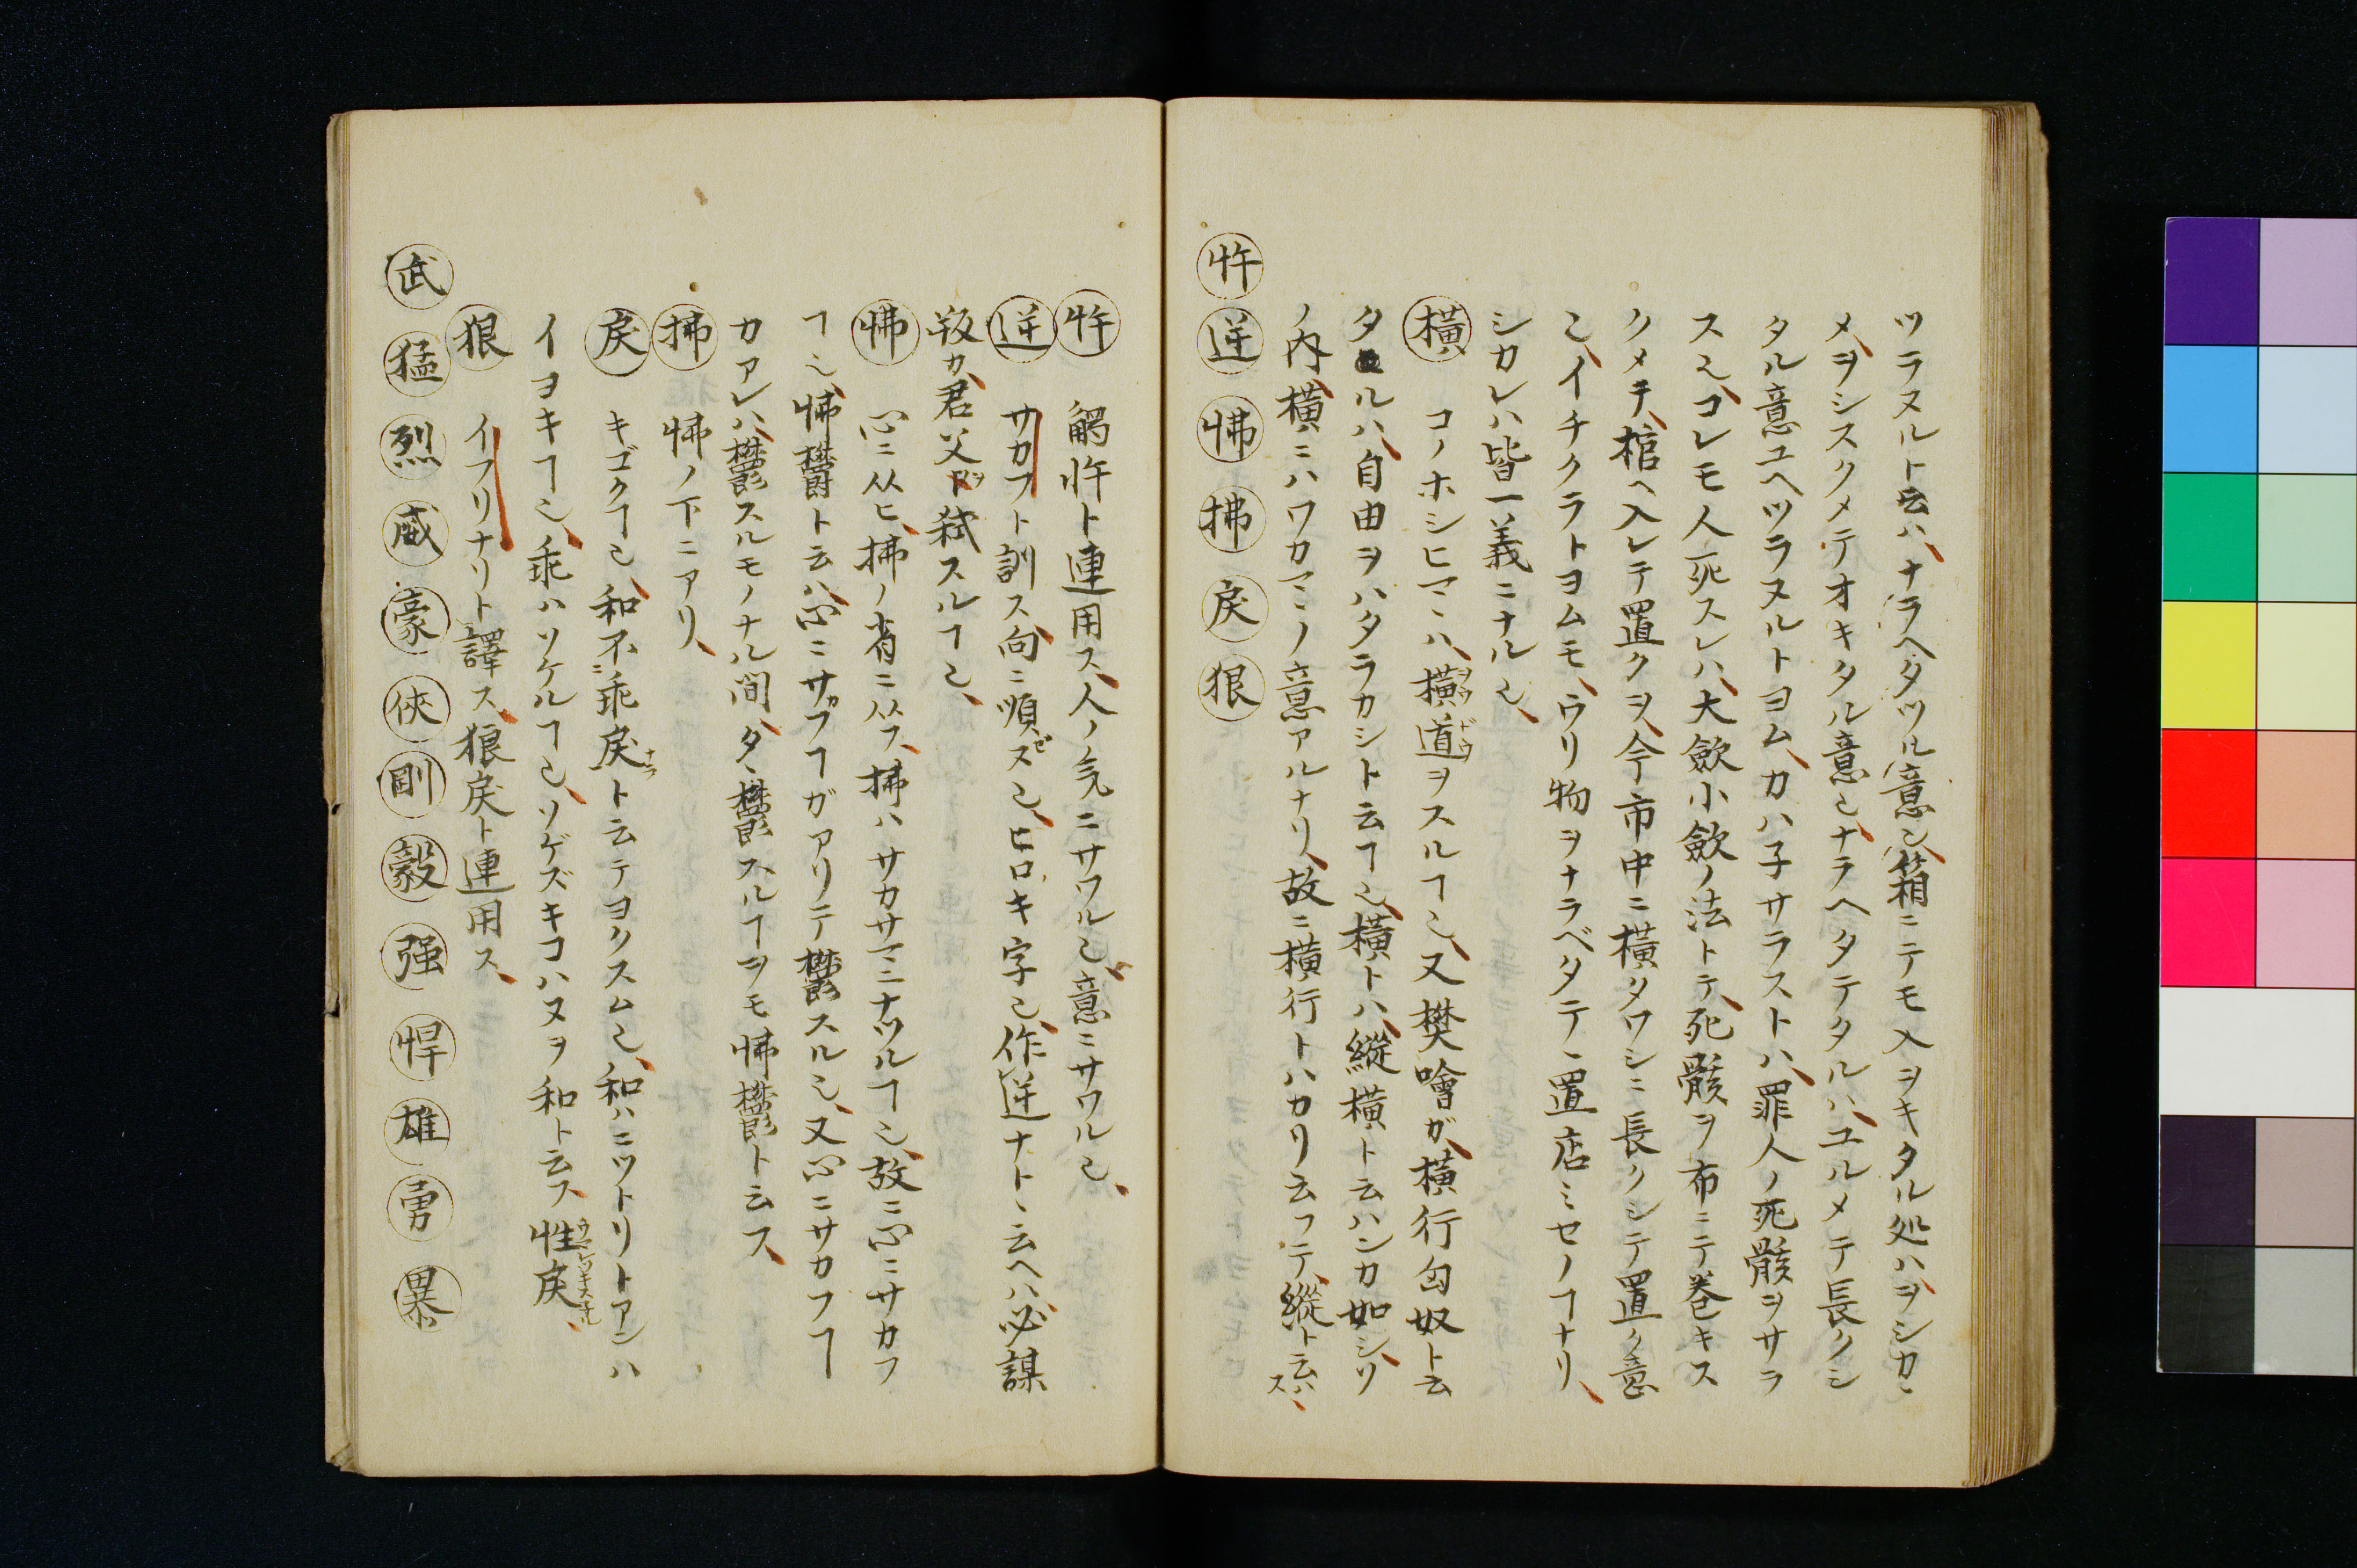 ツラヌルト云ハ、ナラヘタツル意也、箱ニテモ入ヲキタル処ハ、ヲシカヽ
メ、ヲシスクメテオキタル意也、ナラヘタテタルハ、ユルメテ長クシ
タル意ユヘツラヌルトヨム、カハ子サラストハ、罪人ノ死骸ヲサラ
ス也、コレモ人死スレハ、大歛小歛ノ法トテ、死骸ヲ布ニテ巻キス
クメテ、棺ヘ入レテ置クヲ、今市中ニ横タワシニ長クシテ置ク意
也、イチクラトヨムモ、ウリ物ヲナラベタテヽ置店ミセノヿナリ、
シカレハ皆一義ニナル也、
横 コノホシヒマヽハ、横道ヲスルヿ也、又樊噲ガ、横行匈奴ト云
タルハ、自由ヲハタラカシト云ヿ也、横トハ、縦横ト云ハンカ如シ、ソ
ノ内、横ニハワカマヽノ意アルナリ、故ニ横行トハカリ云フテ、縦ト云ハヽス
忤 逆 怫 拂 戻 狠
忤 觸忤ト連用ス、人ノ気ニサワル也、意ニサワル也、
逆 サカフト訓ス、向ニ順ズ也、ヒロキ字也、作逆ナトヽ云ヘハ、必謀
叛カ、君父ヲ弑スルヿ也、
怫 心ニ从ヒ、拂ノ省ニ从フ、拂ハサカサマニナツルヿ也、故ニ心ニサカフ
ヿ也、怫欝ト云ハ、心ニサカフヿガアリテ欝スル也、又心ニサカフヿ
カアレハ、欝スルモノナル間、タヽ欝スルヿヲモ怫欝ト云フ、
拂 怫ノ下ニアリ、
戻 キゴクヿ也、和不乖戻ト云テヨクスム也、和ハニツトリトアンハ
イヨキヿ也、乖ハソケルヿ也、ソゲズキコハヌヲ和ト云フ、性戻、
狠 イフリナリト譯ス、狼戻ト連用ス、
武 猛 烈 威 豪 俠 剛 毅 强 悍 雄 勇 暴